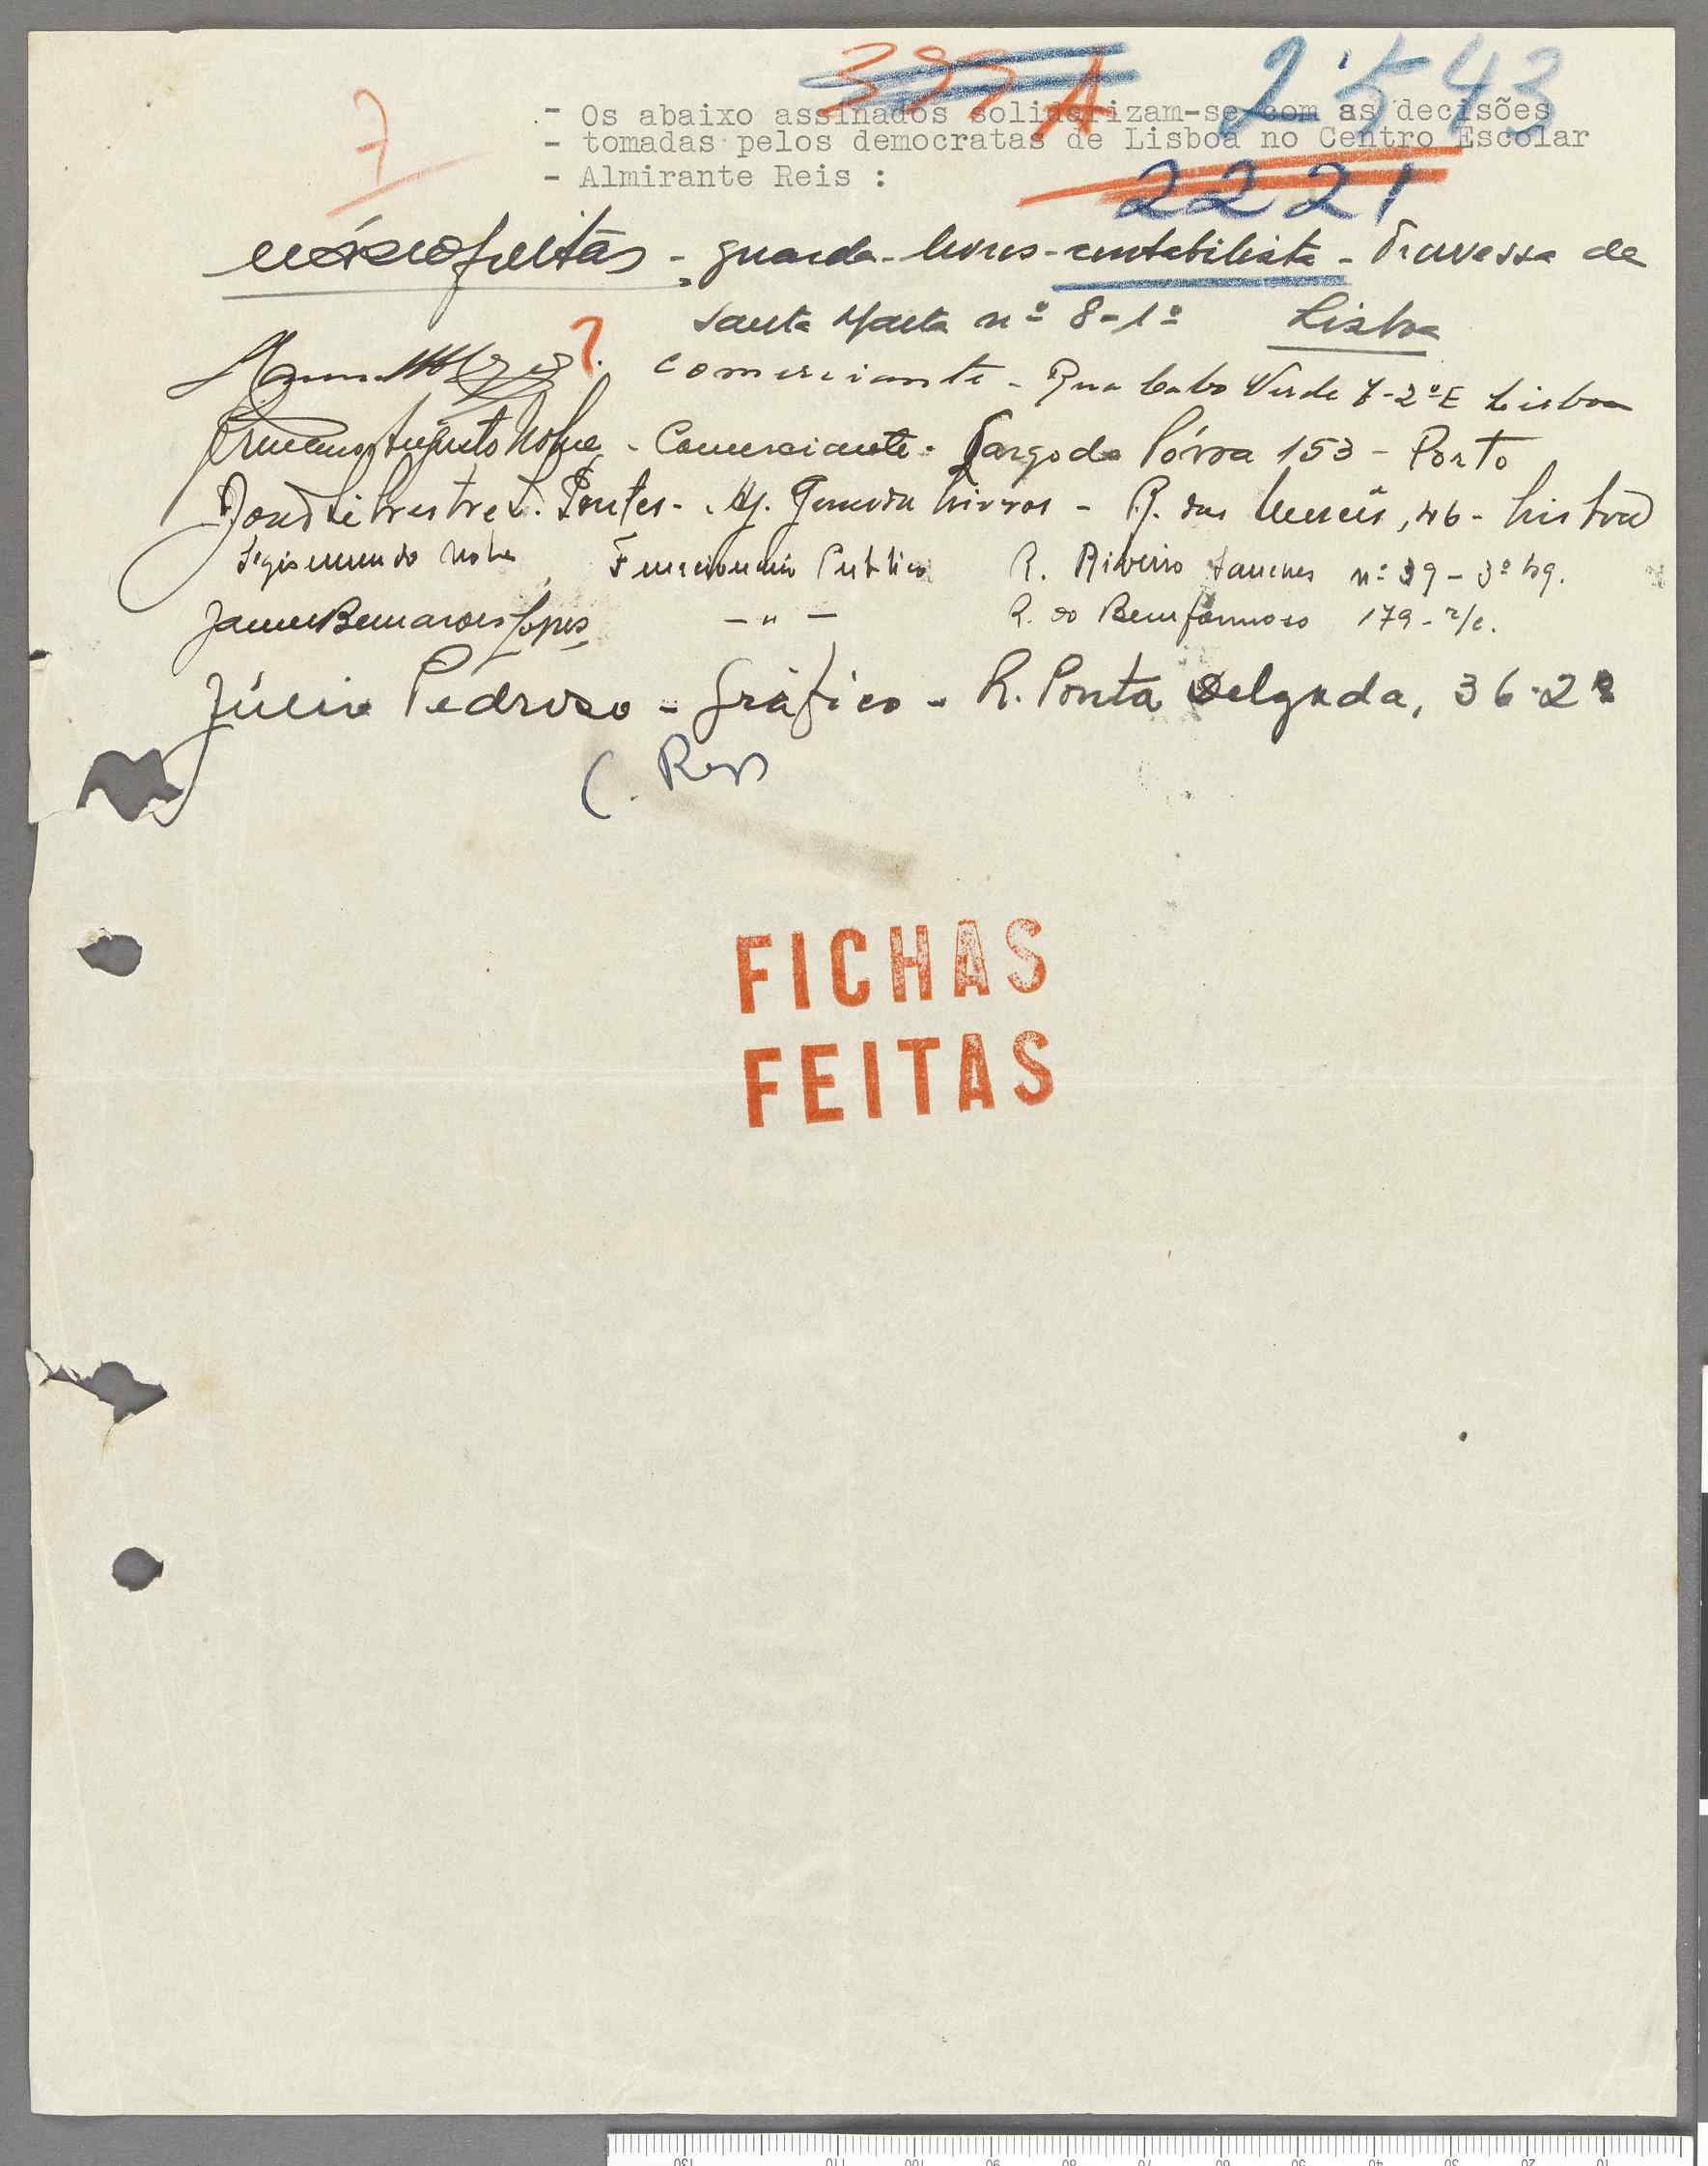 3971 2543
7
- Os abaixo assinados solidarizam-se com as decisões
- tomadas pelos democratas de Lisboa no Centro Escolar
- Almirante Reis :
2221
Freitas - guarda-livros-contabilista - Travessa de
Santa Marta nº 8-1º Lisboa
? comerciante - Rua Cabo Verde 7-2ºE Lisboa
Augusto Nobre - Comerciante - Largo da Póvoa 153 - Porto
Silvestre L. Pontes - Aj. Guarda Livros - R. das , 46 - Lisboa
Sigismundo Nobre Funcionario Publico R. Ribeiro Sanches nº 39 - 3º
Jaime Bernardes Lopes - " - R. do Bemformoso 179 - r/c.
Júlio Pedroso - Gráfico - R. Ponta Delgada, 36-2º
C. Reis
FICHAS
FEITAS